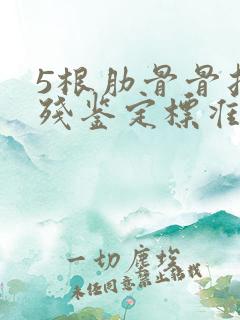 5根肋骨骨折
残鉴定標准
一切塵埃
未经同意禁止搬载